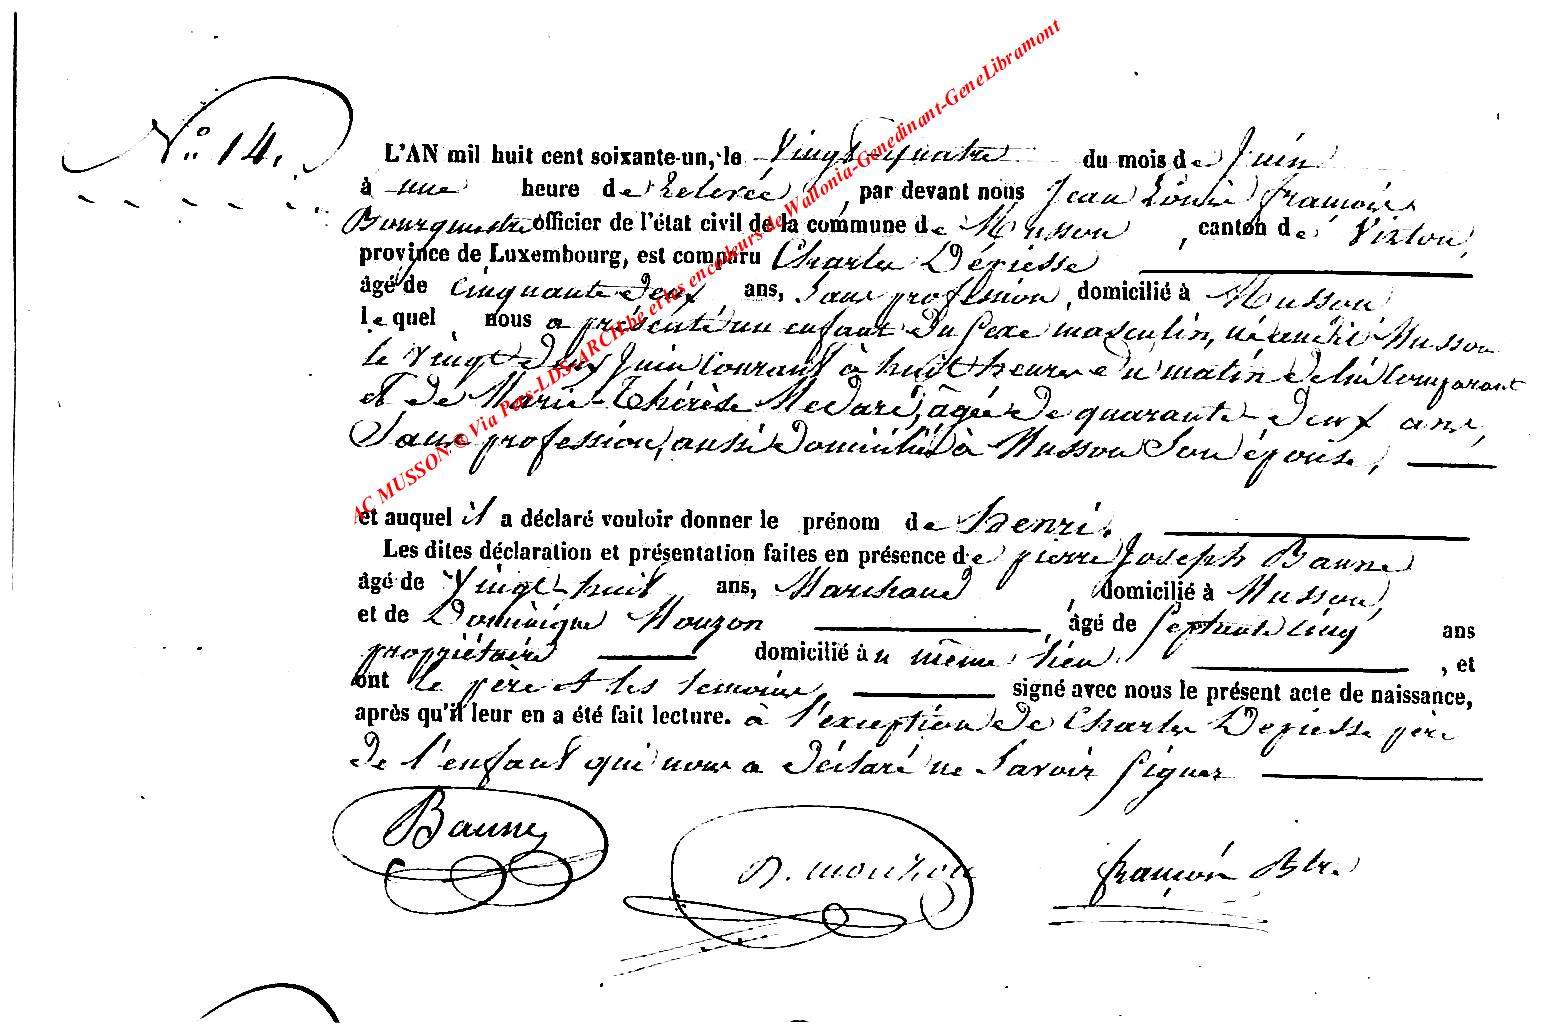 N° 14.
L'AN mil huit cent soixante-un, le Vingt quatre du mois de Juin
à une heure de relevée, par devant nous Jean Louis françois
Bourgmestre officier de l'état civil de la commune de Musson, canton de Virton,
province de Luxembourg, est comparu Charles Dépiesse
âgé de cinquante deux ans, sans profession, domicilié à Musson,
lequel nous a présenté un enfant du sexe masculin, né en dit Musson
le vingt deux Juin courant à huit heures du matin de lui comparant
et de Marie-Thérèse Medard, âgée de quarante-deux ans,
Sans profession, aussi domiciliée à Musson son épouse,
et auquel il a déclaré vouloir donner le prénom de henri.
Les dites déclaration et présentation faites en présence de pierre Joseph Baune
âgé de Vingt-huit ans, Marchand, domicilié à Musson,
et de Dominique Mouzon, âgé de septante cinq ans
propriétaire domicilié au même lieu, et
ont le père et les temoins, signé avec nous le présent acte de naissance,
après qu'il leur en a été fait lecture. à l'exception de Charles Depiesse père
de l'enfant qui nous a déclaré ne savoir signer
Baune
D. mouzon
françois Btre
AC MUSSON © Via Pers-LDS-ARCH.be et les encodeurs de Wallonia-Genedinant-GeneLibramont